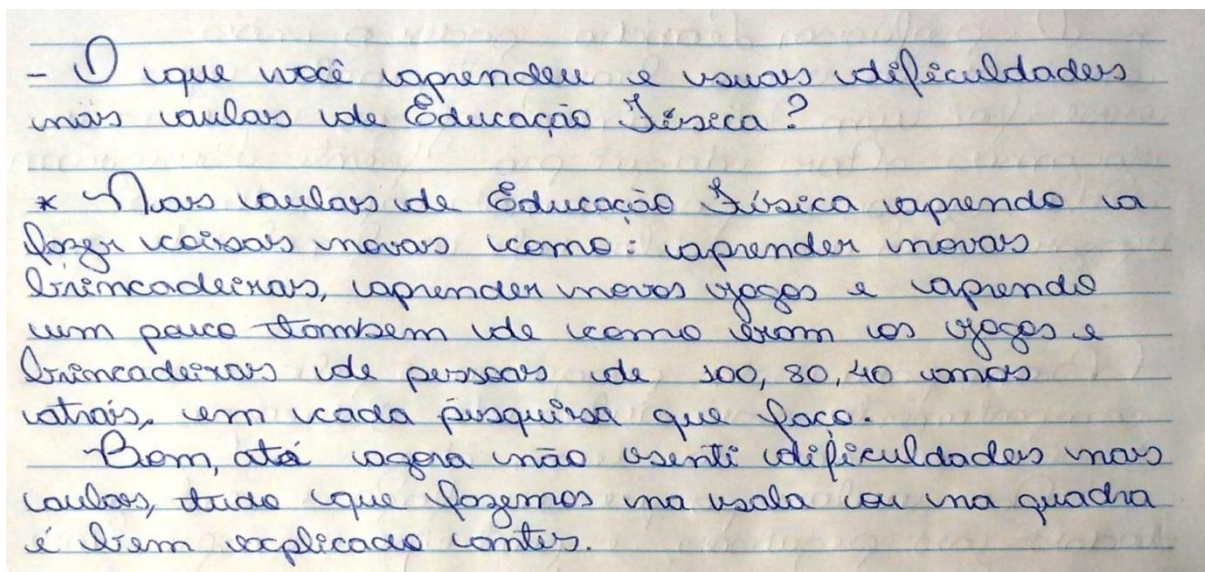 - O que você aprendeu e suas dificuldades
nas aulas de Educação Física?
* Nas aulas de Educação Física aprendo a
fazer coisas novas como: aprender novas
brincadeiras, aprender novos jogos e aprendo
um pouco tambem de como eram os jogos e
brincadeiras de pessoas de 100, 80, 40 anos
atrás, em cada pesquisa que faço.
Bom, até agora não senti dificuldades nas
aulas, tudo que fazemos na sala ou na quadra
é bem explicado antes.